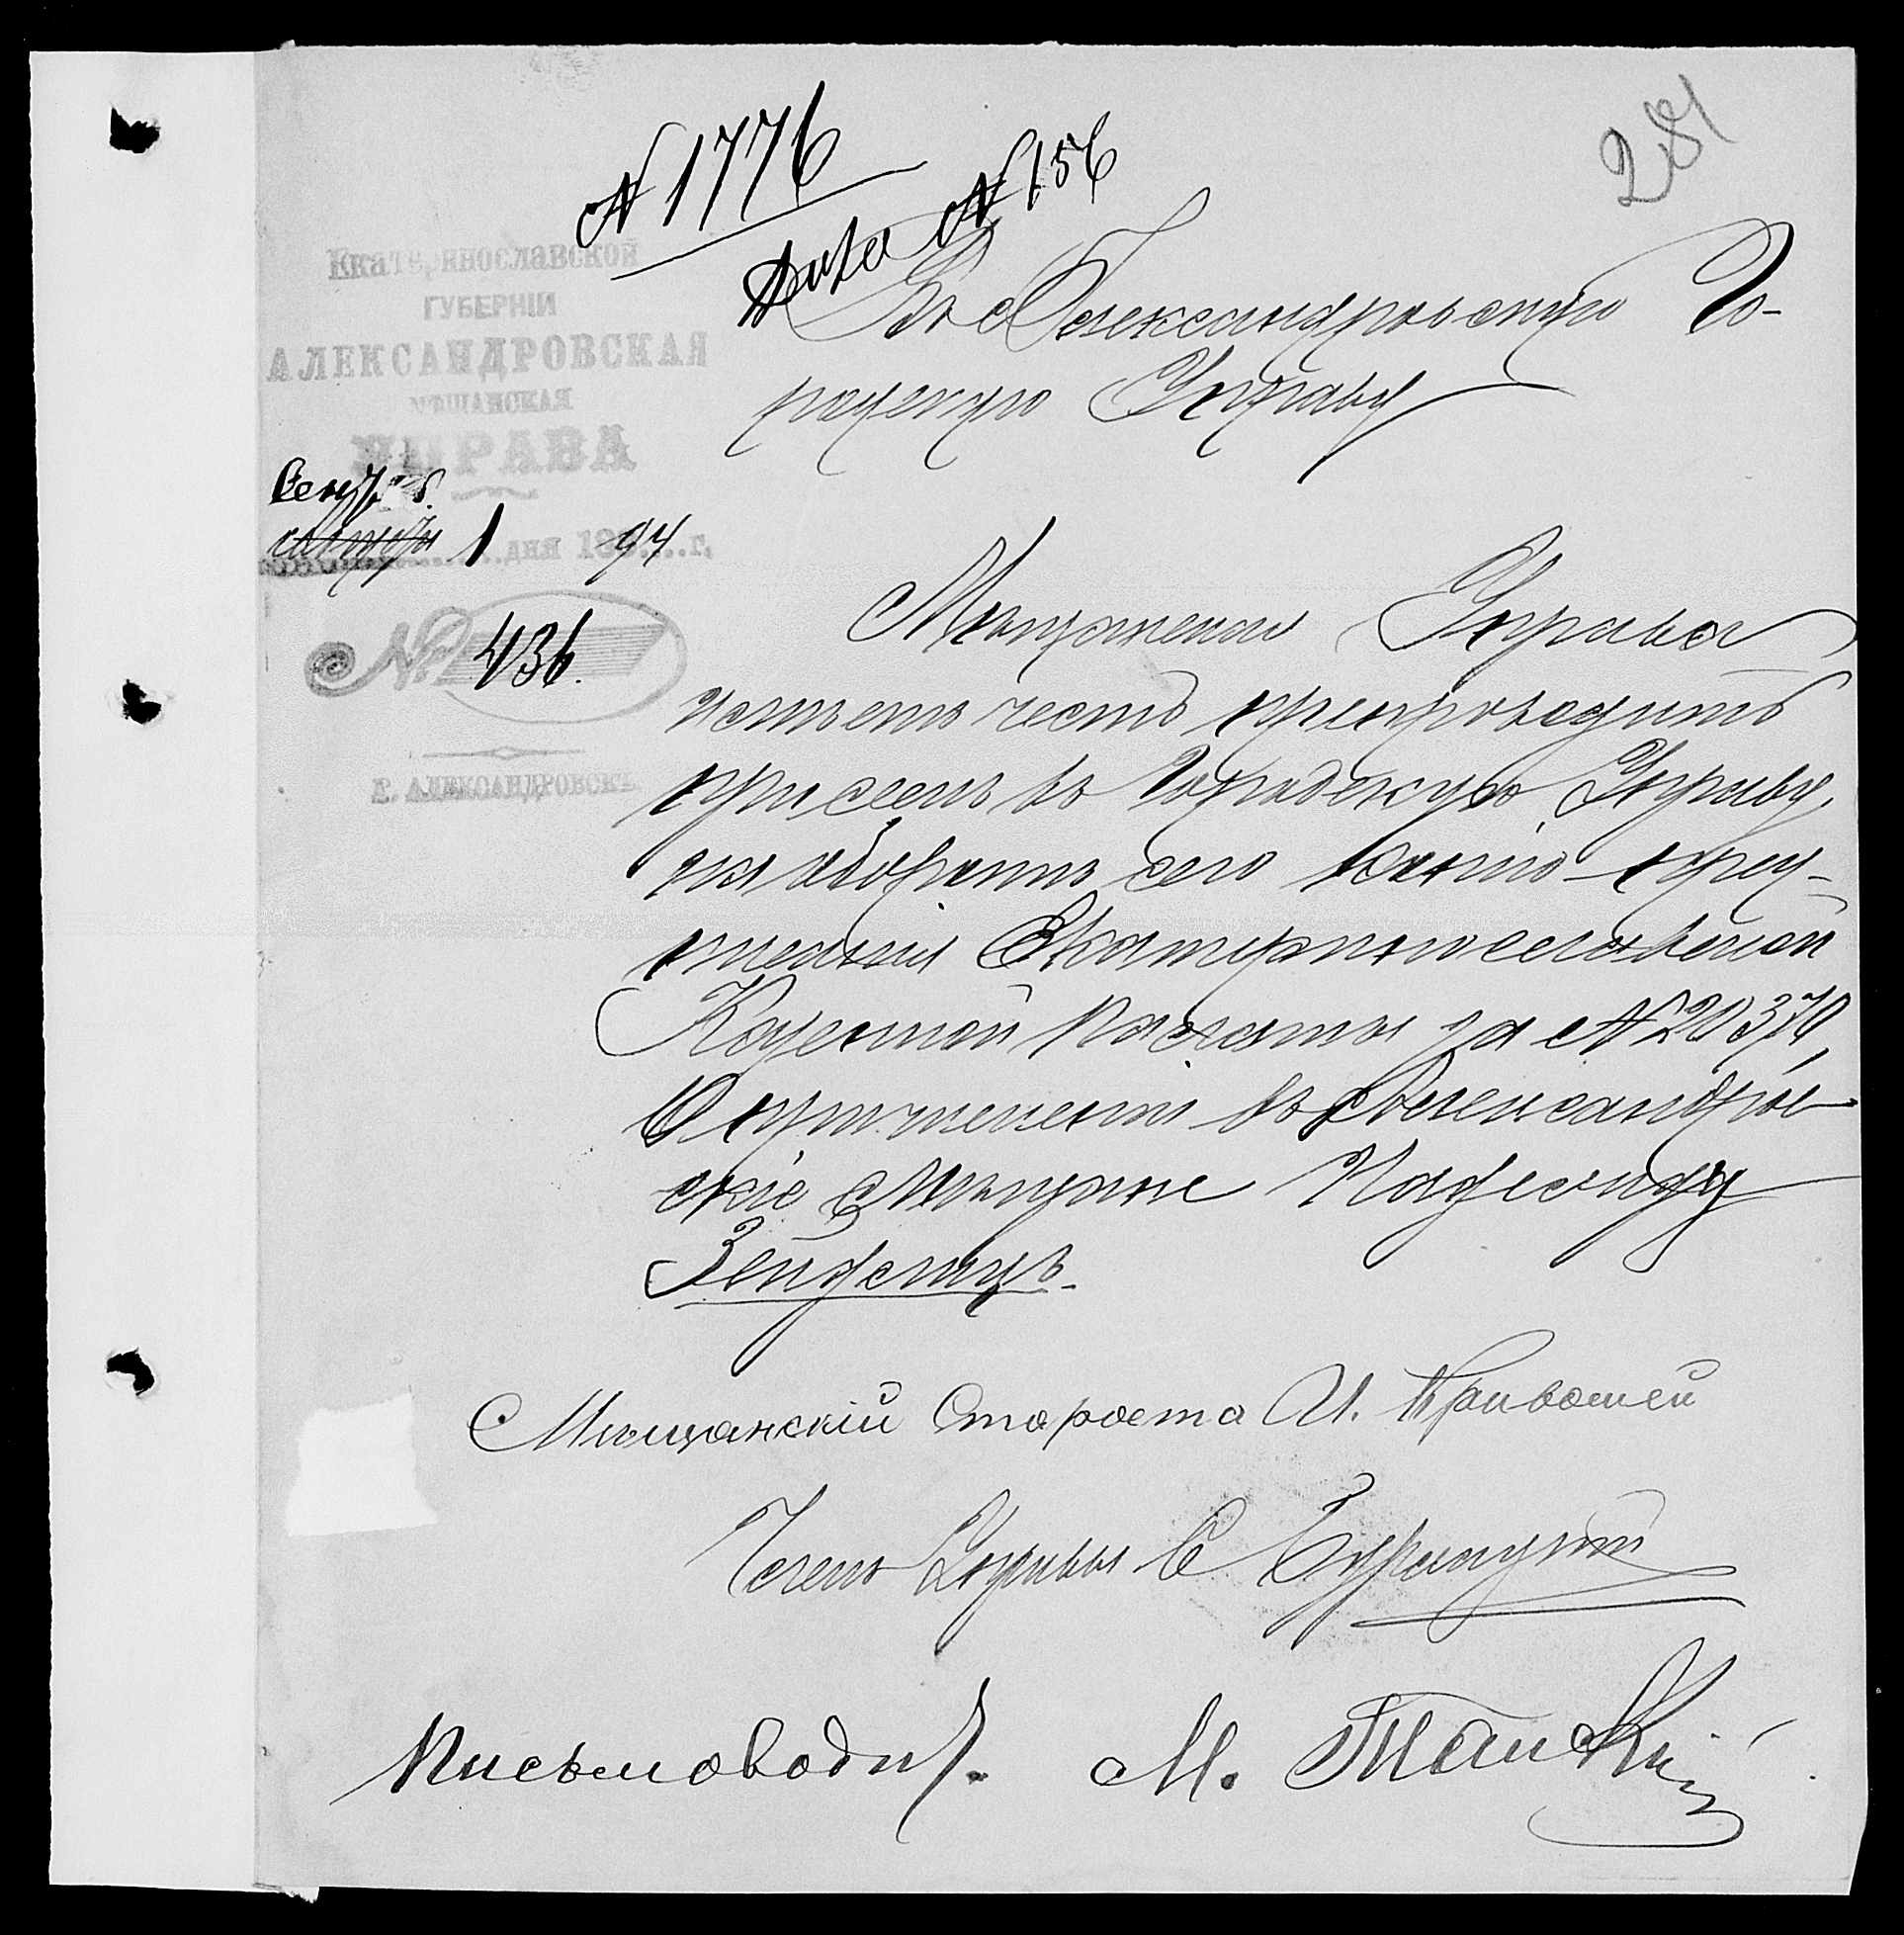 281
N 1776
Дѣло N 156
Екатеринославской
ГУБЕРНІИ
АЛЕКСАНДРОВСКАЯ
МѢЩАНСКАЯ
УПРАВА
Сентяб.
1 дня 1894 г.
№ 436.
Г. АЛЕКСАНДРОВСКЪ
Въ Александровскую Го-
родскую Управу
Мѣщанская Управа
имѣетъ честь препроводить
при семъ въ Городскую Управу,
на оборотѣ сего копію пред-
писанія Екатеринославской
Казенной Палаты за N 20370,
О причисленіи въ Александров-
скіе Мѣщане
Мѣщанскій Староста И. Кривошей
Членъ Управы С
Письмоводит. М.